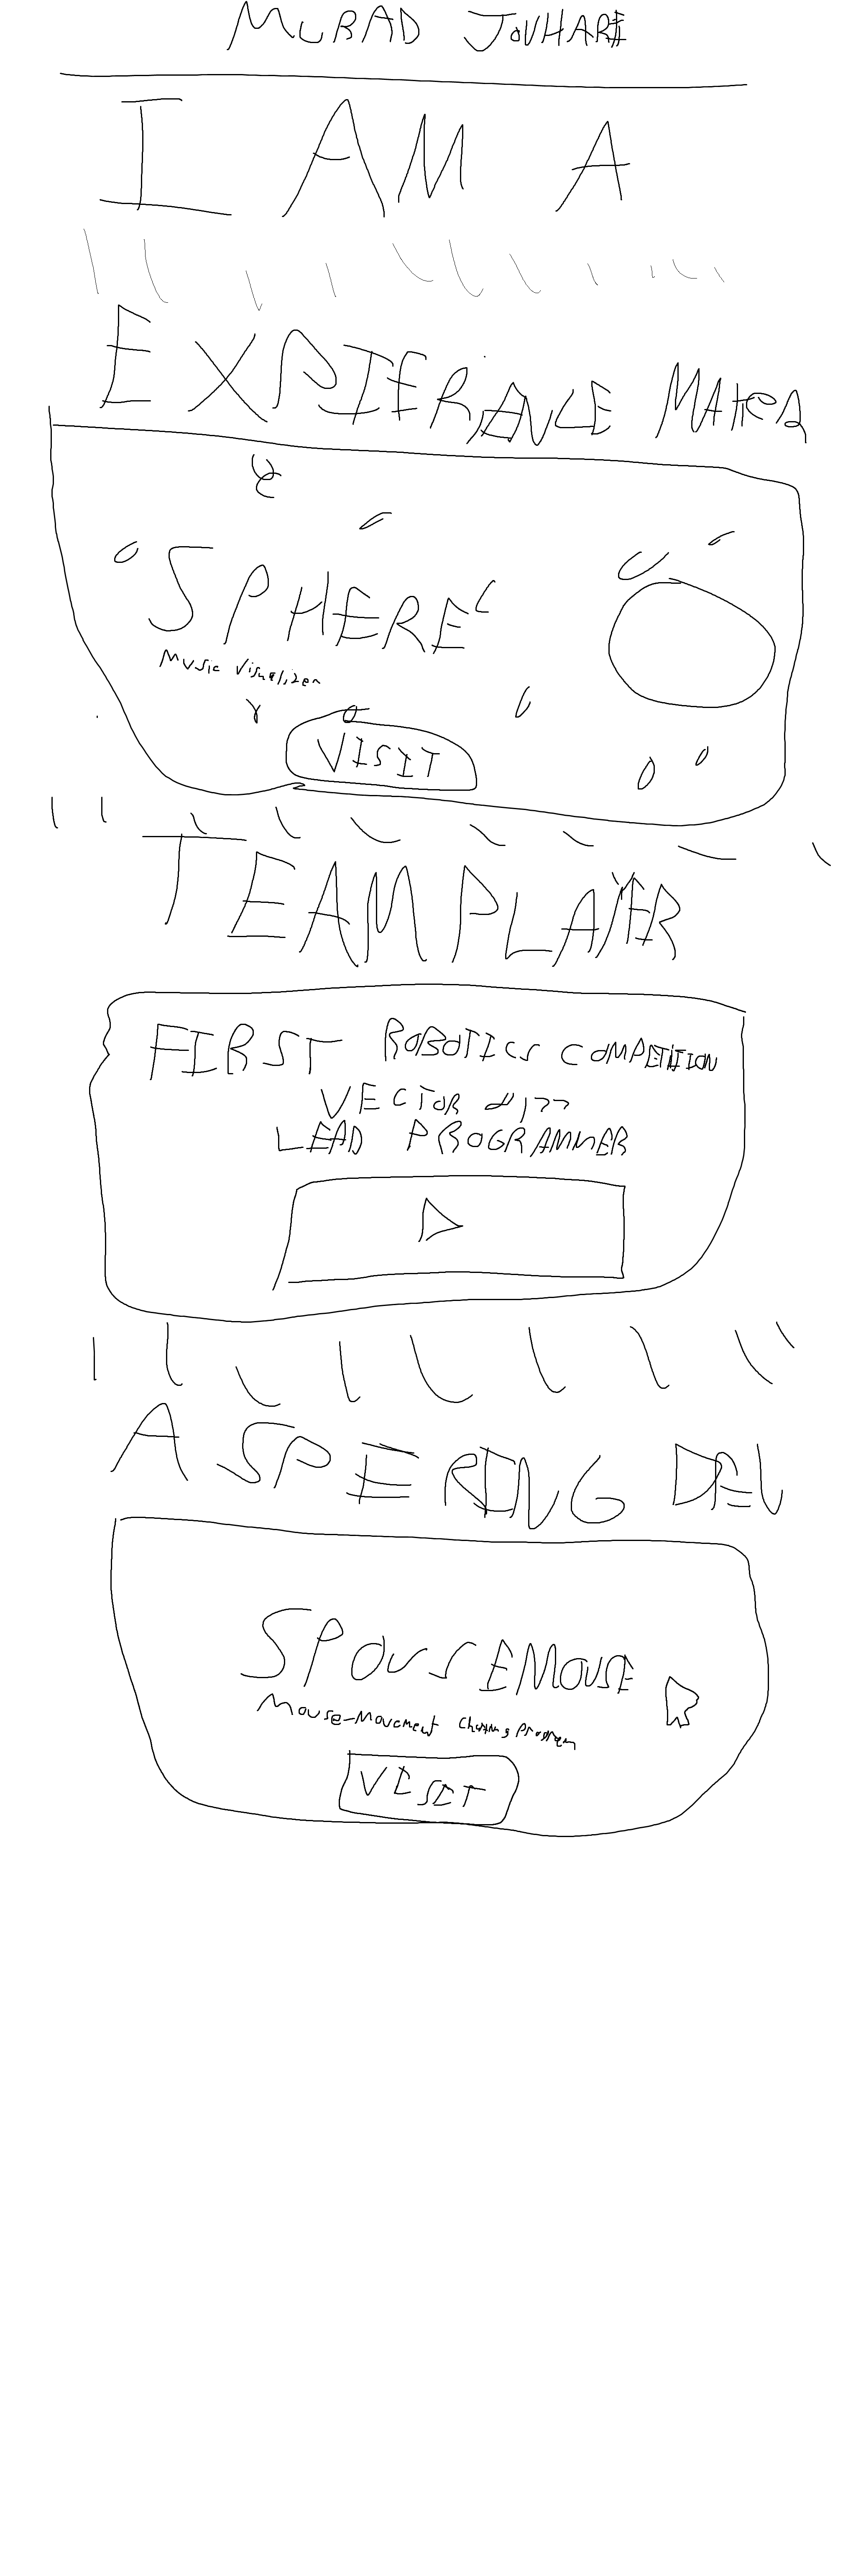 MURAD JOUHARI
I AM A
EXPIERIANCE MAKER
SPHERE
Music Visualizer
VISIT
TEAM PLAYER
FIRST ROBOTICS COMPETITION
VECTOR 8177
LEAD PROGRAMMER
ASPERING DEV
SPOUSEMOUSE
Mouse-Movement Program
VISIT